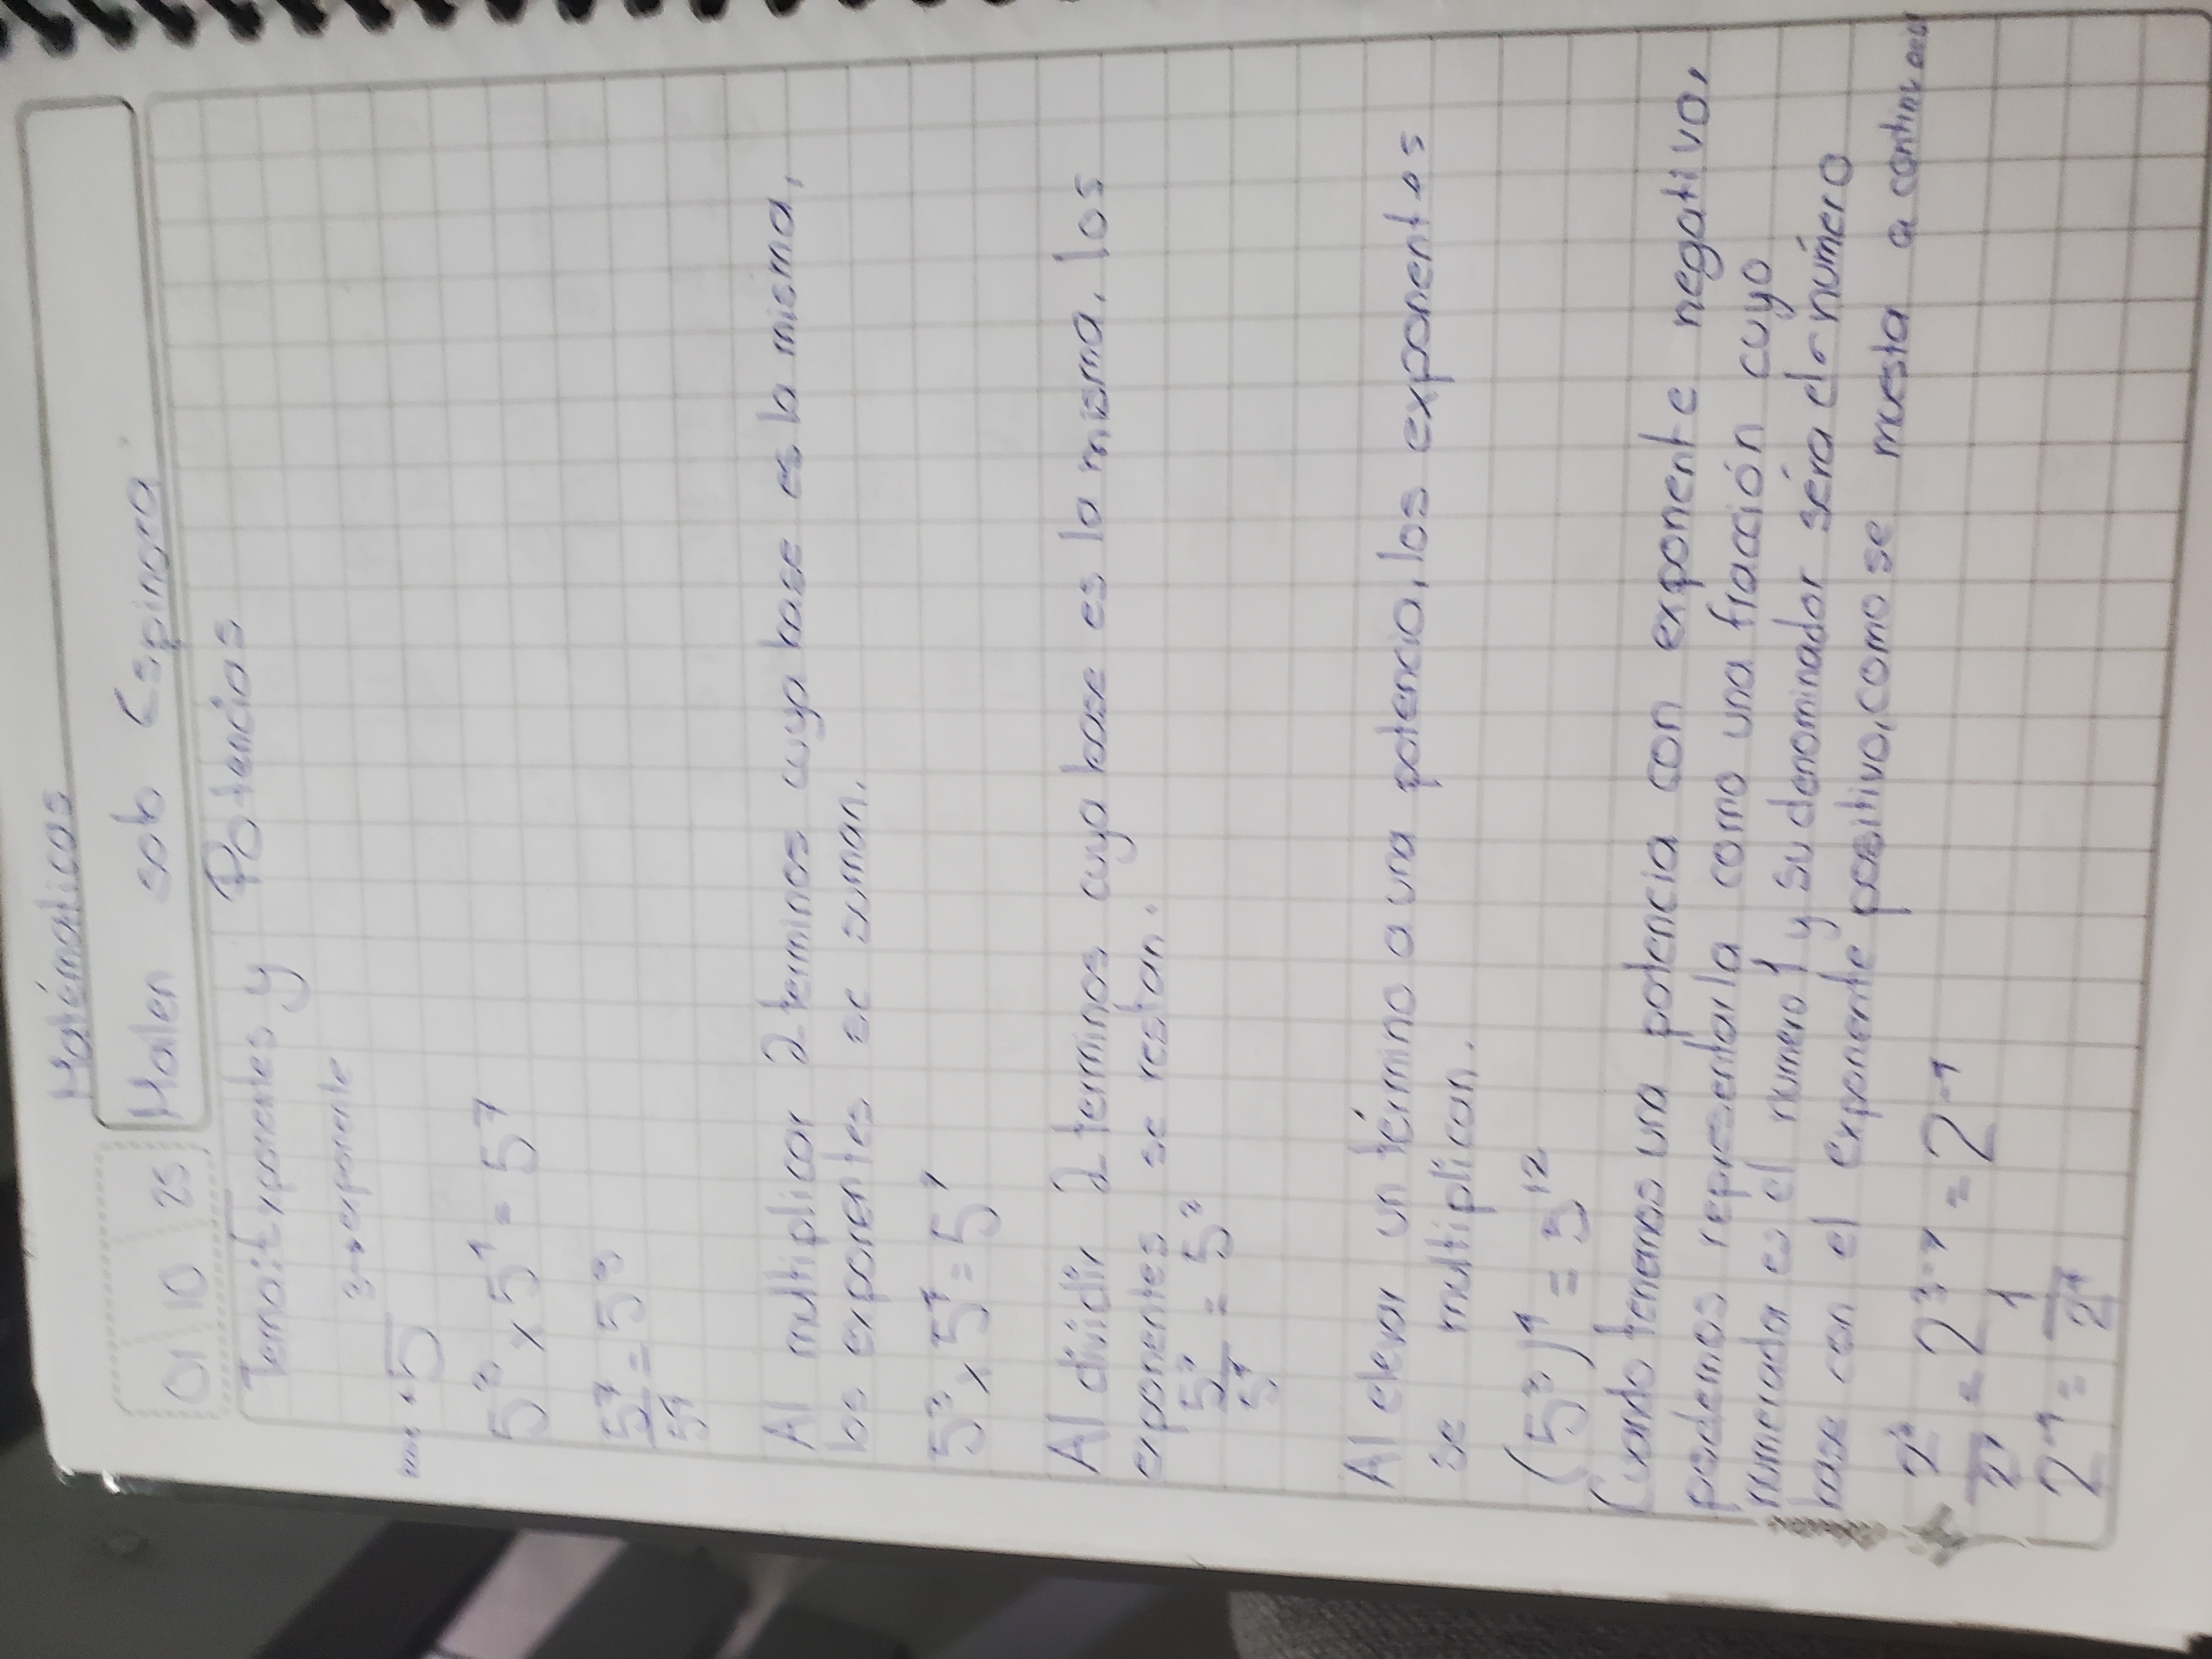 Matématicas
01 10 25 Mailen soto Espinoza.
Tema: Exponentes y Potencias
3→exponente
base ← 5
5³ x 5⁴ = 5⁷
5⁷/5⁴ = 5³
Al multiplicar 2 terminos cuya base es la misma,
los exponentes se suman.
5³ x 5⁴ = 5⁷
Al dividir 2 terminos cuya base es la misma, los
exponentes se restan.
Al elevar un término a una potencia, los exponentes
se multiplican.
(5³)⁴ = 5¹²
Cuando tenemos una potencia con exponente negativo,
podemos representarla como una fracción cuyo
numerador es el numero 1 y su denominador séra el número
base con el exponente positivo, como se muesta a